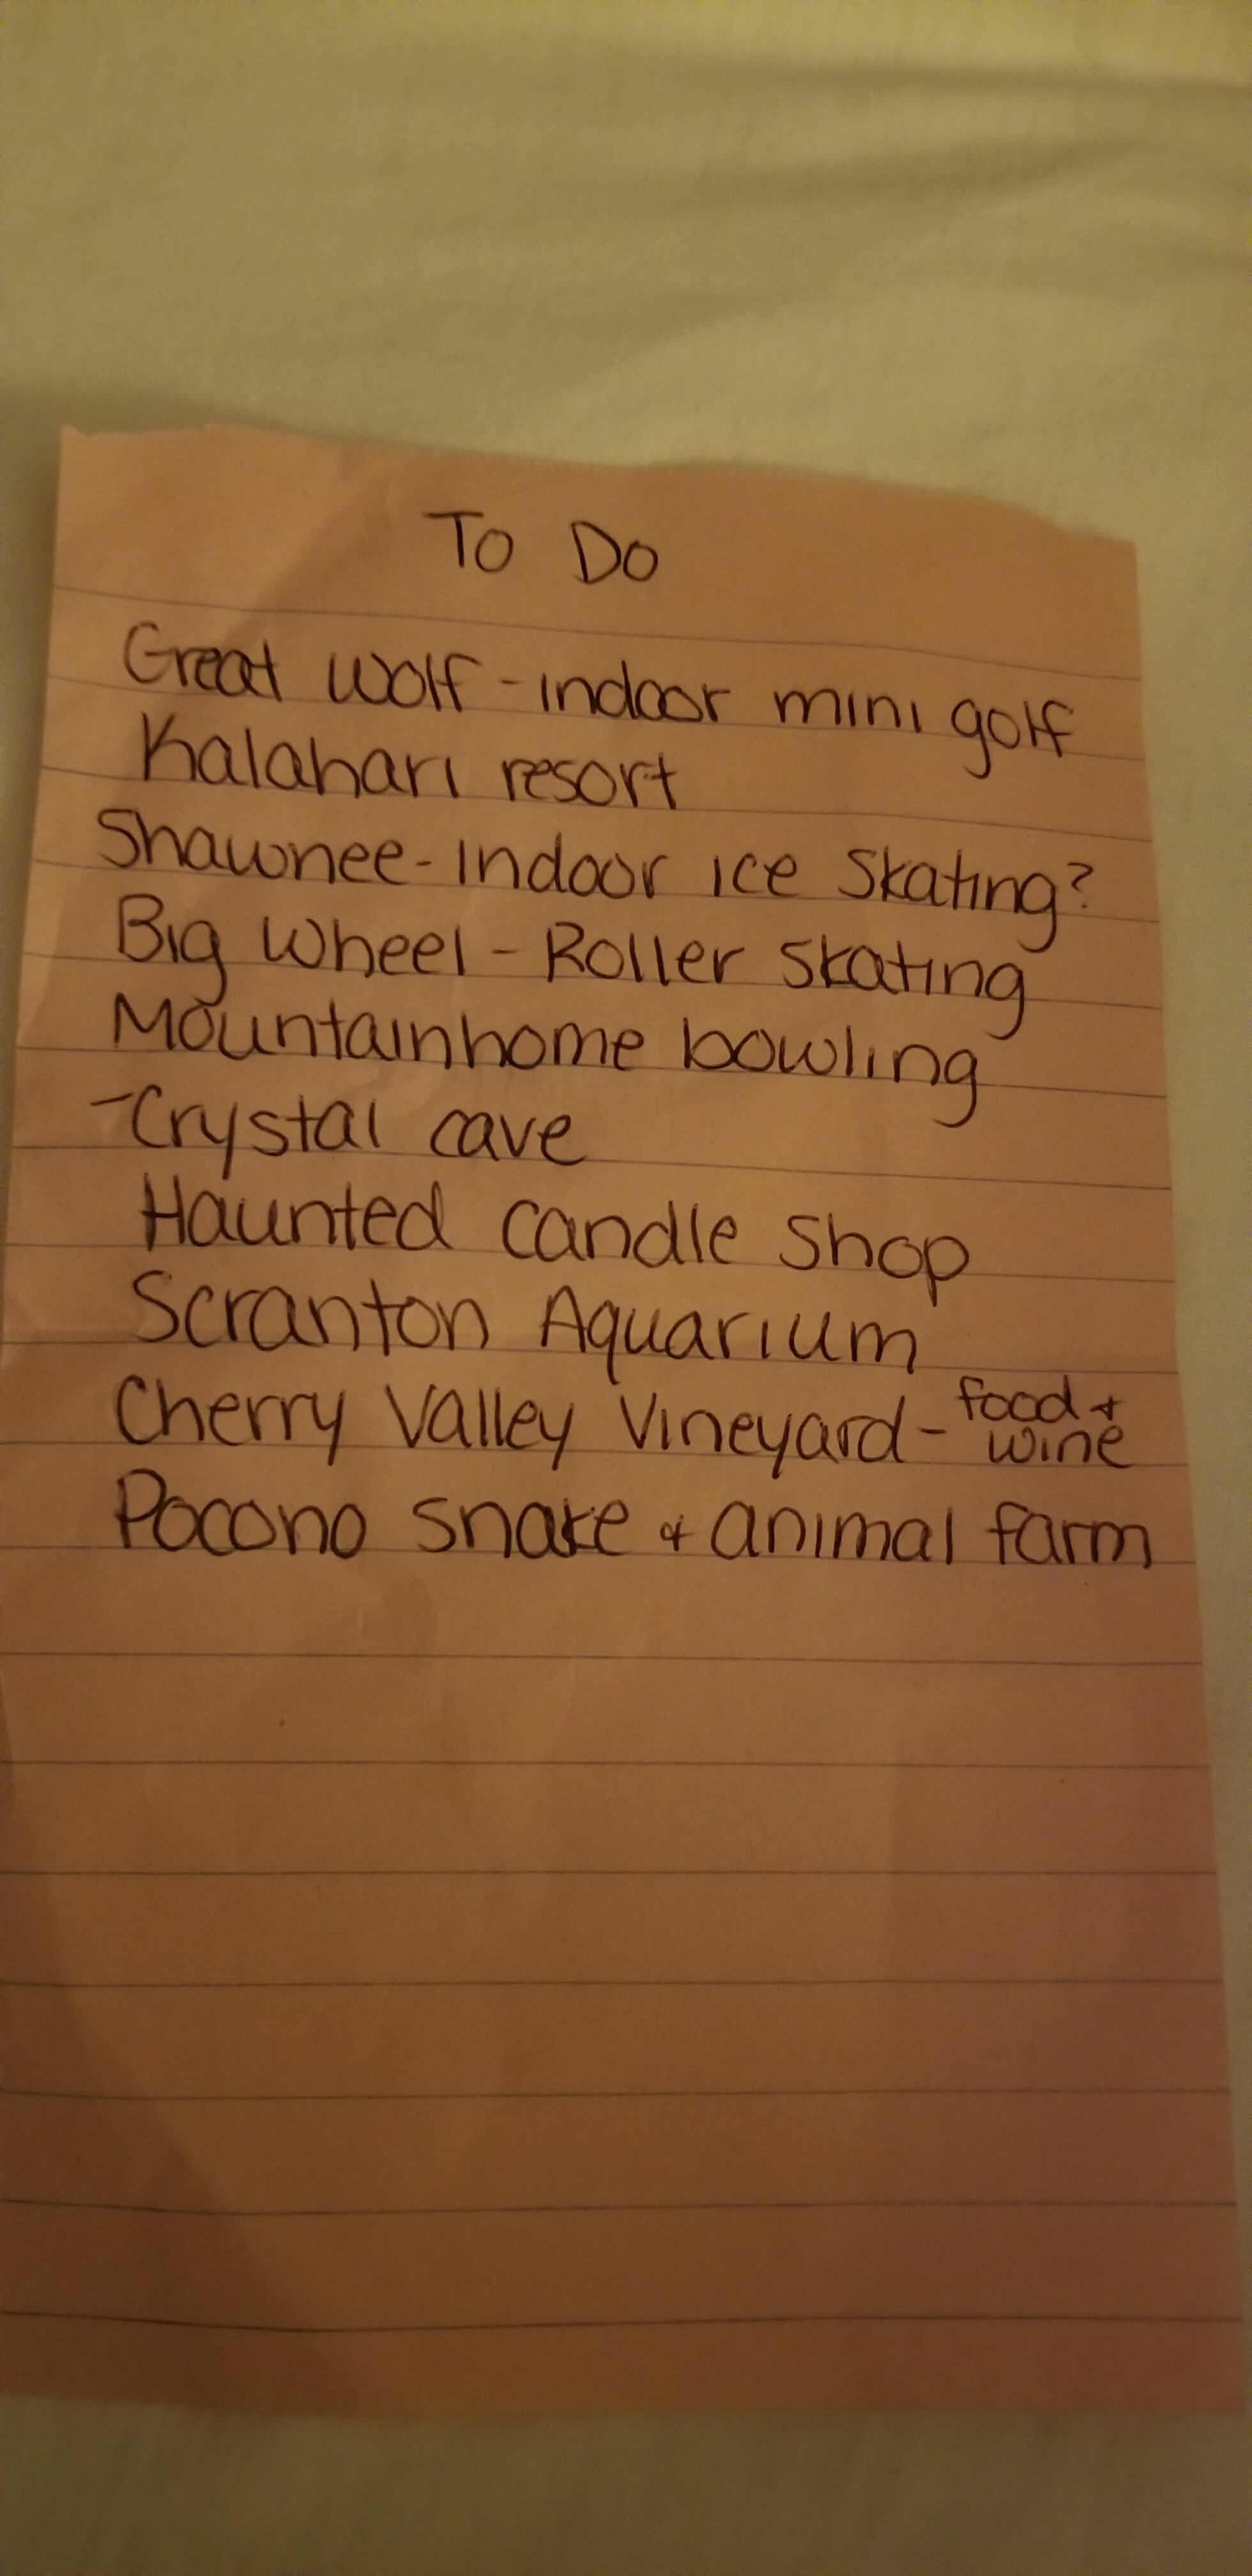 To Do
Great Wolf - indoor mini golf
Kalahari resort
Shawnee - Indoor ice skating?
Big Wheel - Roller skating
Mountainhome bowling
- Crystal cave
Haunted candle shop
Scranton Aquarium
Cherry Valley Vineyard - food + wine
Pocono snake + animal farm